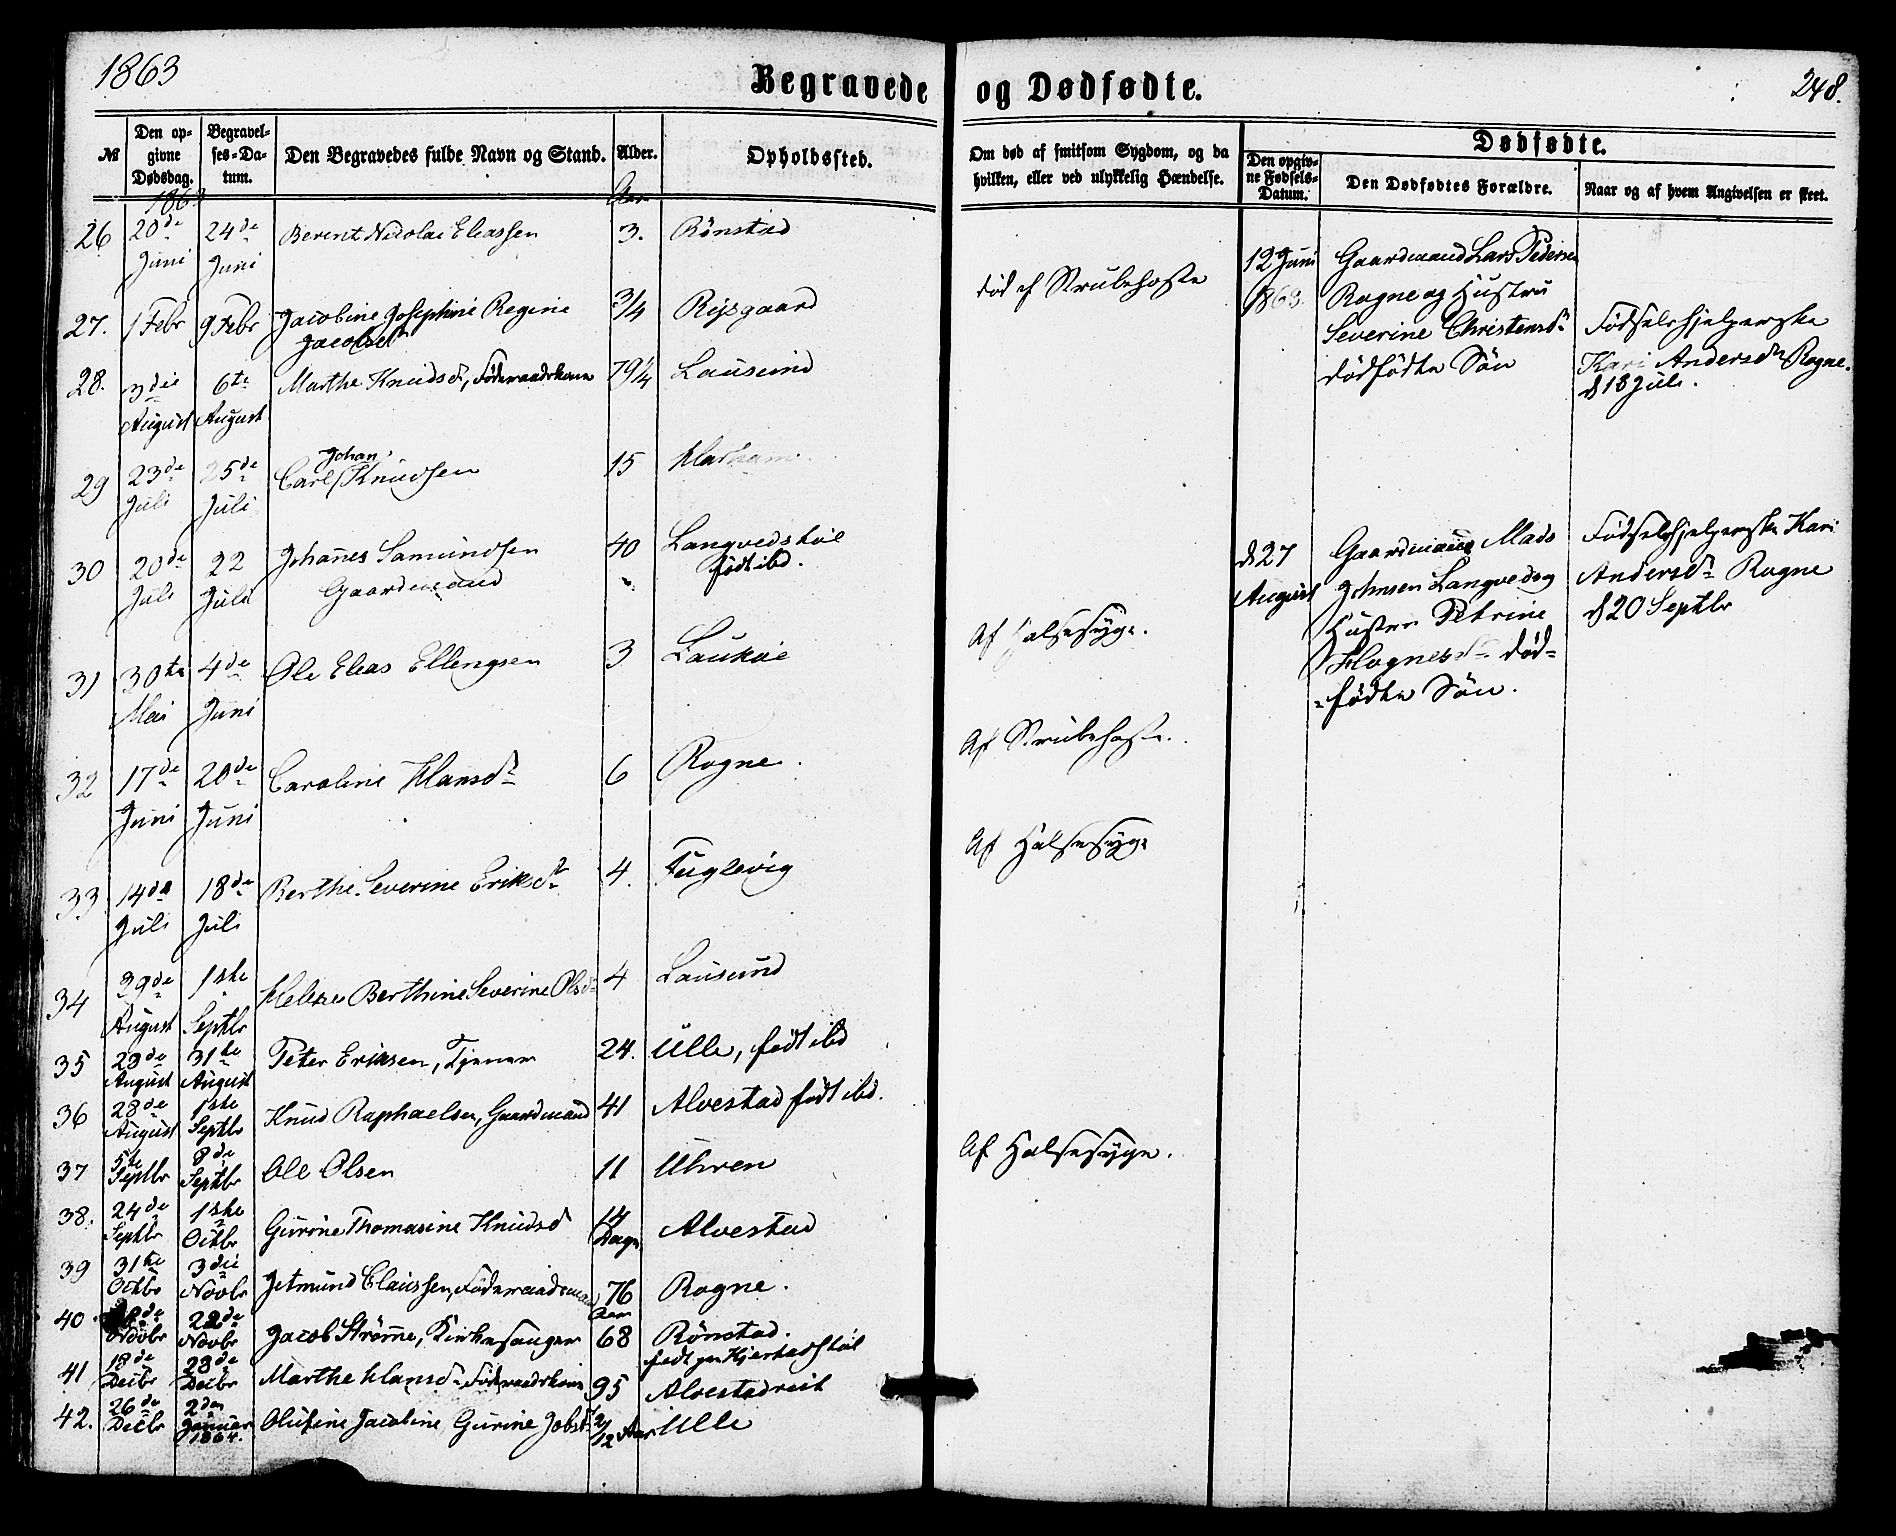 1863
Begravede og Dødfødte.
248.
№
Den opgivne Dødsdag.
Begravelses-Datum.
Den Begravedes fulde Navn og Stand.
Alder.
Opholdssted.
Om død af smitsom Sygdom, og da hvilken, eller ved ulykkelig Hændelse.
Dødfødte.
Den opgivne Fødsels-Datum.
Den Dødfødtes Forældre.
Naar og af hvem Angivelsen er skeet.
1863
Aar
26 20de Juni 24de Juni Berent Nicolai Eleassen 3. Rønstad død af Strubehoste
27. 1 Febr 9 Febr Jacobine Josephine Regine Jacobsd 3/4 Rijsgaard
28. 3die August 6te August Marthe Knudsdr, Føderaadskone 79 1/4 Lausund
29 23de Juli 25de Juli Carl Johan Knudsen 15 Harham
30 20de Juli 22 Juli Johanes Samundsen Gaardmand 40 Langvedstøl født ibd.
31 30te Mai 4de Juni Ole Eleas Ellengsen 3 Laukøe Af Halsesyge.
32 17de Juni 20de Juni Caroline Hansdr 6 Rogne. Af Strubehoste.
33. 14de Juli 18de Juli Berthe Severine Eriksdr 4. Fuglevig Af Halsesyge
34 29de August 1ste Septbr Helene Berthine Severine Olsdr 4 Lausund
35 29de August 31te August Peter Eriksen, Tjener 24. Ulle, født ibd
36 28de August 1ste Septbr Knud Raphaelsen, Gaardmand 41 Alvestad født ibd.
37 5te Septbr 8de Septbr Ole Olsen 11 Uhren Af Halsesyge.
38. 24de Septbr 1ste Octbr Gurine Thomasine Knudsd 14 Dage Alvestad
39 31te Octbr 3die Novbr Jetmund Claussen, Føderaadsmand 76 Aar Rogne.
40. Novbr 22de Novbr Jacob Strømme, Kirkesanger 68 Rønstad.
født paa Kjerstadstøl
41 18de Decbr 28de Decbr Marthe Hansdr Føderaadskone 95 Alvestadvik
42. 26de Decbr 2den Januar 1864. Olufine Jacobine Gurine Jobsd 2/12 Aar Ulle
12 Juni 1863. Gaardmand Lars Pedersen
Rogne og Hustru
Severine Christensdr
dødfødte Søn
Fødselshjelperske
Kari Andersdr Rogne.
d 18 Juli.
d 27 August Gaardmand Mads
Johnsen Langved og
Hustru Petrine
Hognesdr død=
=fødte Søn.
Fødselshjelperske Kari
Andersdr Rogne
d 20 Septbr